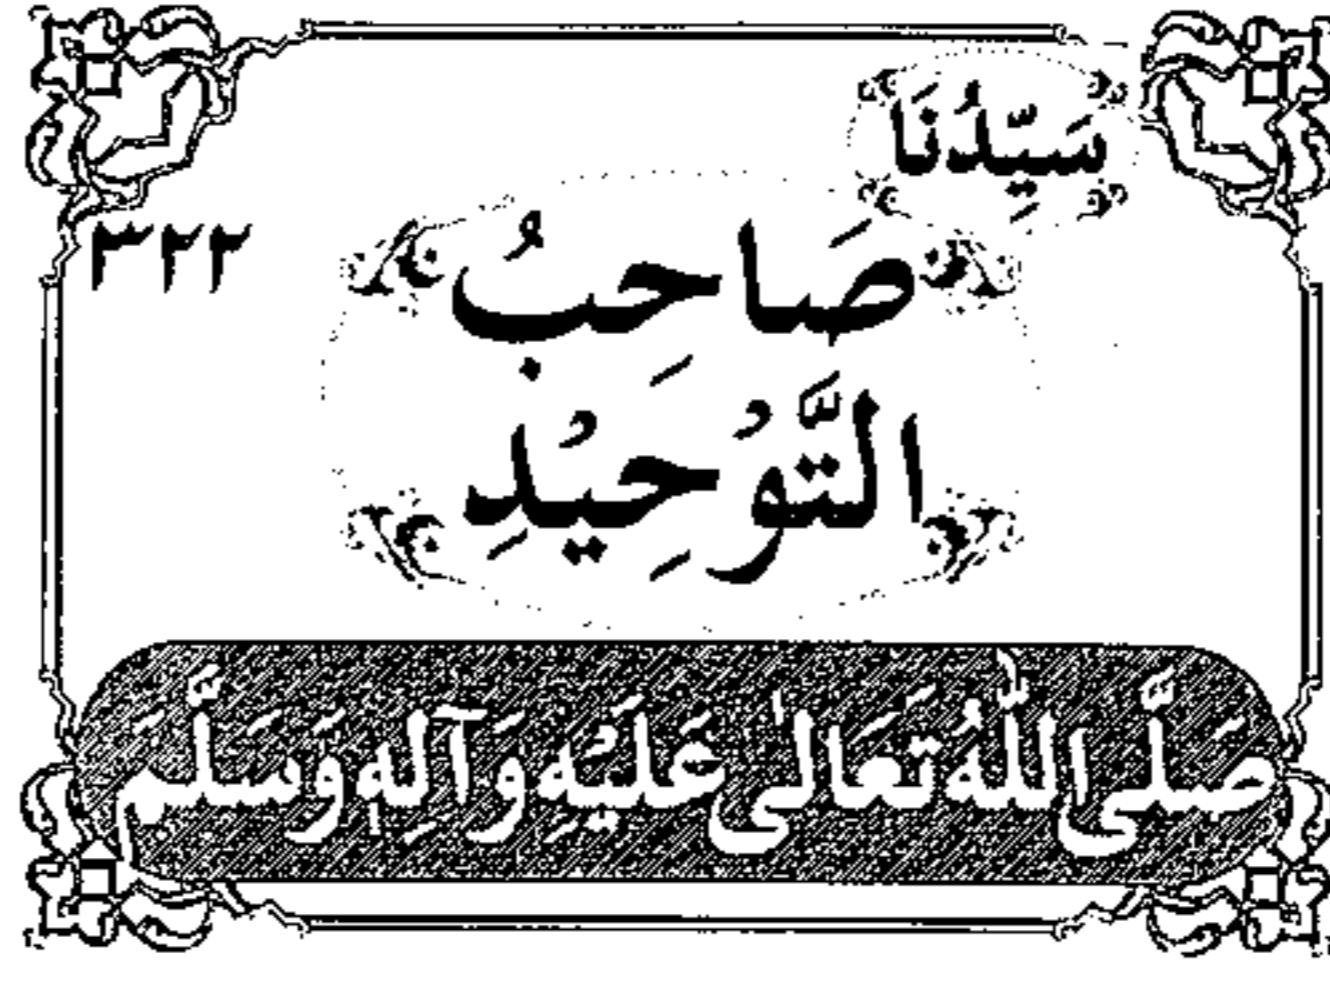 سَيِّدُنَا
٣٢٢
صَاحِبُ
التَّوُحِيُدِ
صَلَّى اللّٰهُ تَعَالٰى عَلَيُهِ وَآلِهٖ وَسَلَّمَ